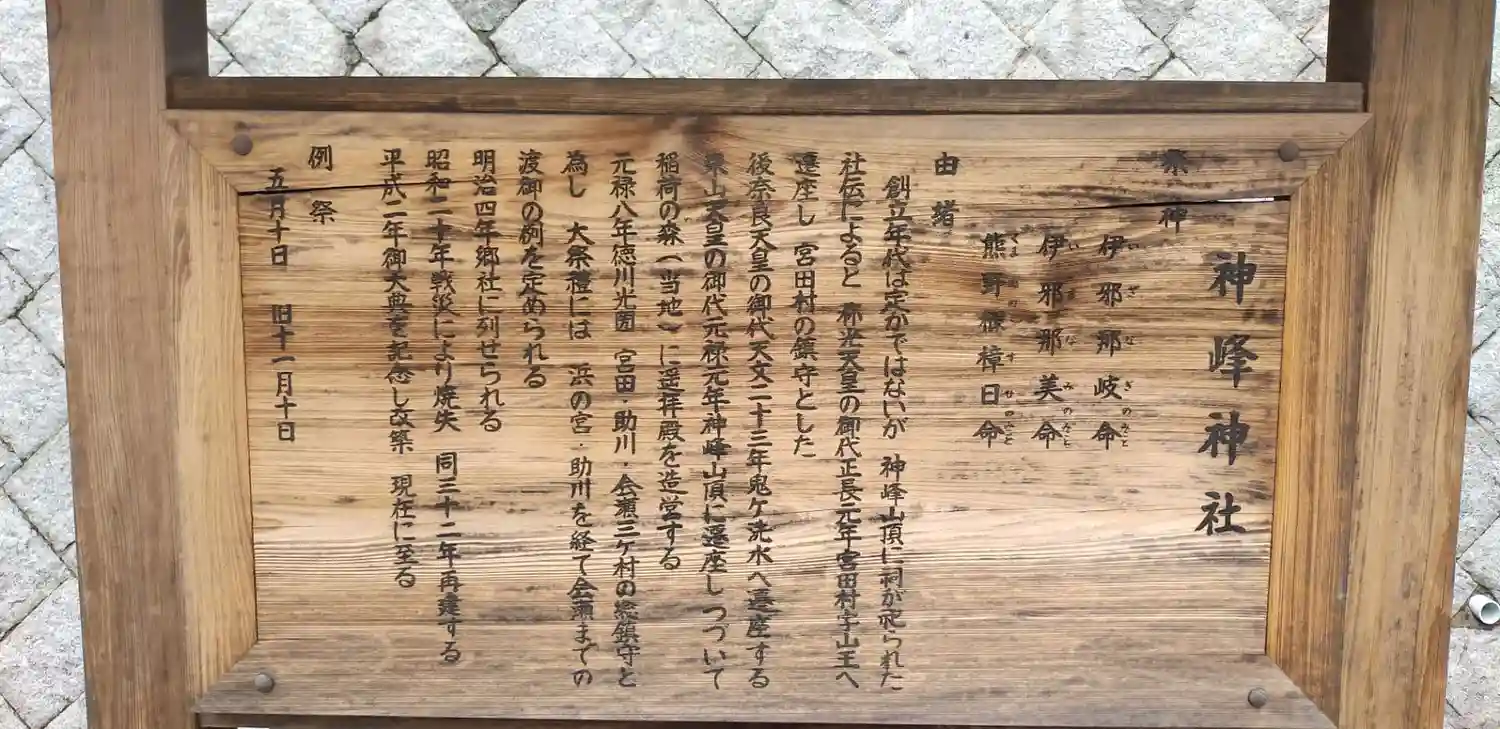 神峰神社
祭神
伊邪那岐命
いざなぎのみこと
伊邪那美命
いざなみのみこと
熊野櫲樟日命
くまのくすひのみこと
由緒
創立年代は定かではないが 神峰山頂に祠が祀られた
社伝によると 称光天皇の御代正長元年宮田村字山王へ
遷座し 宮田村の鎮守とした
後奈良天皇の御代天文二十三年鬼ケ洗水へ遷座する
東山天皇の御代元禄元年神峰山頂に遷座し つづいて
稲荷の森（当地）に遥拝殿を造営する
元禄八年徳川光圀 宮田・助川・会瀬三ケ村の総鎮守と
為し 大祭禮には 浜の宮・助川を経て会瀬までの
渡御の例を定められる
明治四年郷社に列せられる
昭和二十年戦災により焼失 同三十二年再建する
平成二年御大典を記念し改築 現在に至る
例祭
五月十日 旧十一月十日